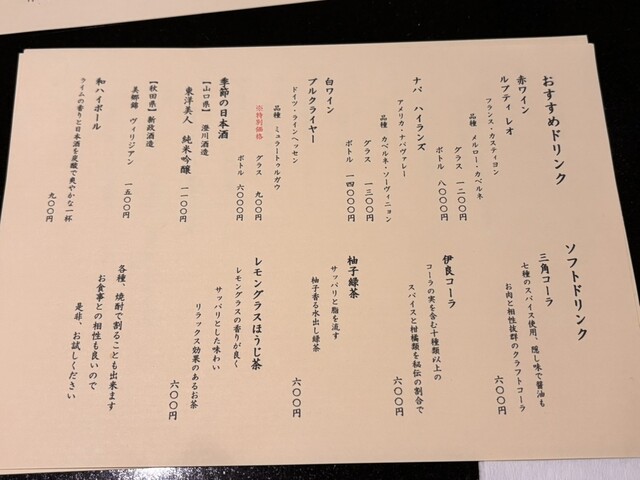 おすすめドリンク
赤ワイン
ルプティ レオ
フランス・カスティヨン
品種 メルロー・カベルネ
グラス 一二〇〇円
ボトル 八〇〇〇円
ナパ ハイランズ
アメリカ・ナパヴァレー
品種 カベルネ・ソーヴィニョン
グラス 一三〇〇円
ボトル 一四〇〇〇円
白ワイン
ブルクライヤー
ドイツ・ラインヘッセン
品種 ミュラートゥルガウ
※特別価格
グラス 九〇〇円
ボトル 六〇〇〇円
季節の日本酒
【山口県】 澄川酒造
東洋美人 純米吟醸
一一〇〇円
【秋田県】 新政酒造
美郷錦 ヴィリジアン
一五〇〇円
和ハイボール
ライムの香りと日本酒を炭酸で爽やかな一杯
九〇〇円
ソフトドリンク
三角コーラ
七種のスパイス使用、隠し味で醤油も
お肉と相性抜群のクラフトコーラ
六〇〇円
伊良コーラ
コーラの実を含む十種類以上の
スパイスと柑橘類を秘伝の割合で
六〇〇円
柚子緑茶
サッパリと脂を流す
柚子香る水出し緑茶
六〇〇円
レモングラスほうじ茶
レモングラスの香りが良く
サッパリとした味わい
リラックス効果のあるお茶
六〇〇円
各種、焼酎で割ることも出来ます
お食事との相性も良いので
是非、お試しください